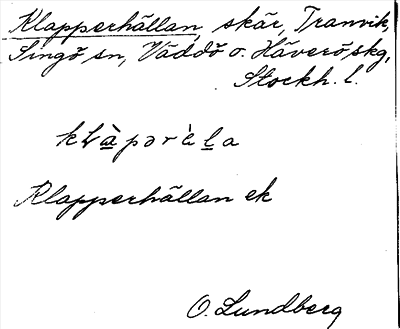 Klapperhällan, skär, Tranvik,
Singö sn, Väddö o. Häverö skg,
Stockh. l.
Klapperhällan ek
O. Lundberg